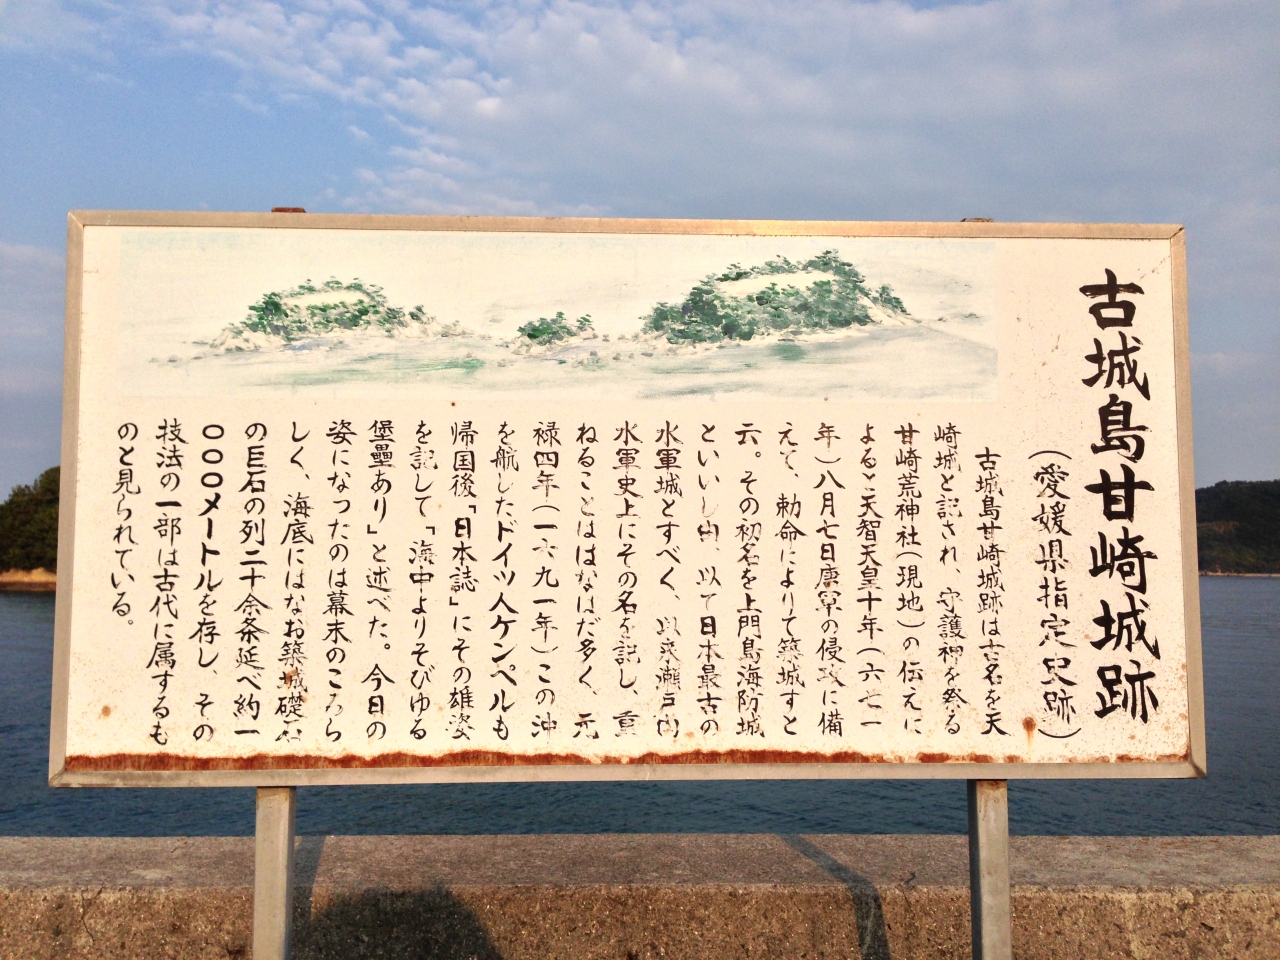 古城島甘崎城跡
（愛媛県指定史跡）
古城島甘崎城跡は古名を天
崎城と記され、守護神を祭る
甘崎荒神社（現地）の伝えに
よると天智天皇十年（六七一
年）八月七日唐軍の侵攻に備
えて、勅命によりて築城すと
云。その初名を上門島海防城
といいし由、以て日本最古の
水軍城とすべく、以来瀬戸内
水軍史上にその名を記し、重
ねることははなはだ多く、元
禄四年（一六九一年）この沖
を航したドイツ人ケンペルも
帰国後「日本誌」にその雄姿
を記して「海中よりそびゆる
堡壘あり」と述べた。今日の
姿になったのは幕末のころら
しく、海底にはなお築城礎石
の巨石の列二十余条延べ約一
〇〇〇メートルを存し、その
技法の一部は古代に属するも
のと見られている。